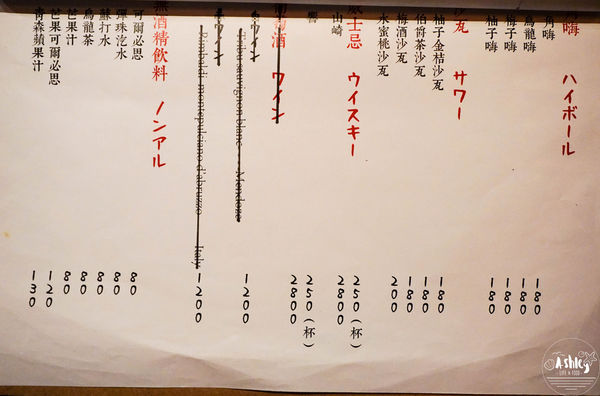 嗨 ハイボール
角嗨 180
烏龍嗨 180
梅子嗨 180
柚子嗨 180
沙瓦 サワー
柚子金桔沙瓦 180
伯爵茶沙瓦 180
梅酒沙瓦 180
水蜜桃沙瓦 200
威士忌 ウイスキー
250(杯)
山崎 2800
響 250(杯)
2800
葡萄酒 ワイン
ワイン
sauvignon blanc Mendoza 1200
ワイン
montepulciano d'abruzzo Italy 1200
無酒精飲料 ノンアル
可爾必思 80
彈珠汽水 80
蘇打水 80
烏龍茶 80
芒果汁 80
芒果可爾必思 120
青森蘋果汁 130
Ashley
LIFE N FOOD